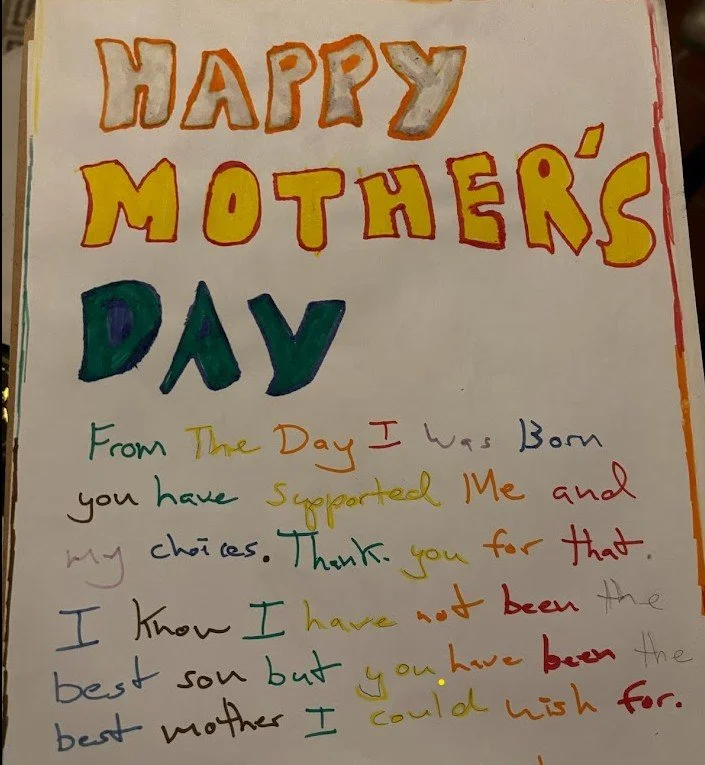 HAPPY
MOTHER'S
DAY
From The Day I Was Born
you have supported Me and
my choices. Thank you for that.
I know I have not been the
best son but you have been the
best mother I could wish for.